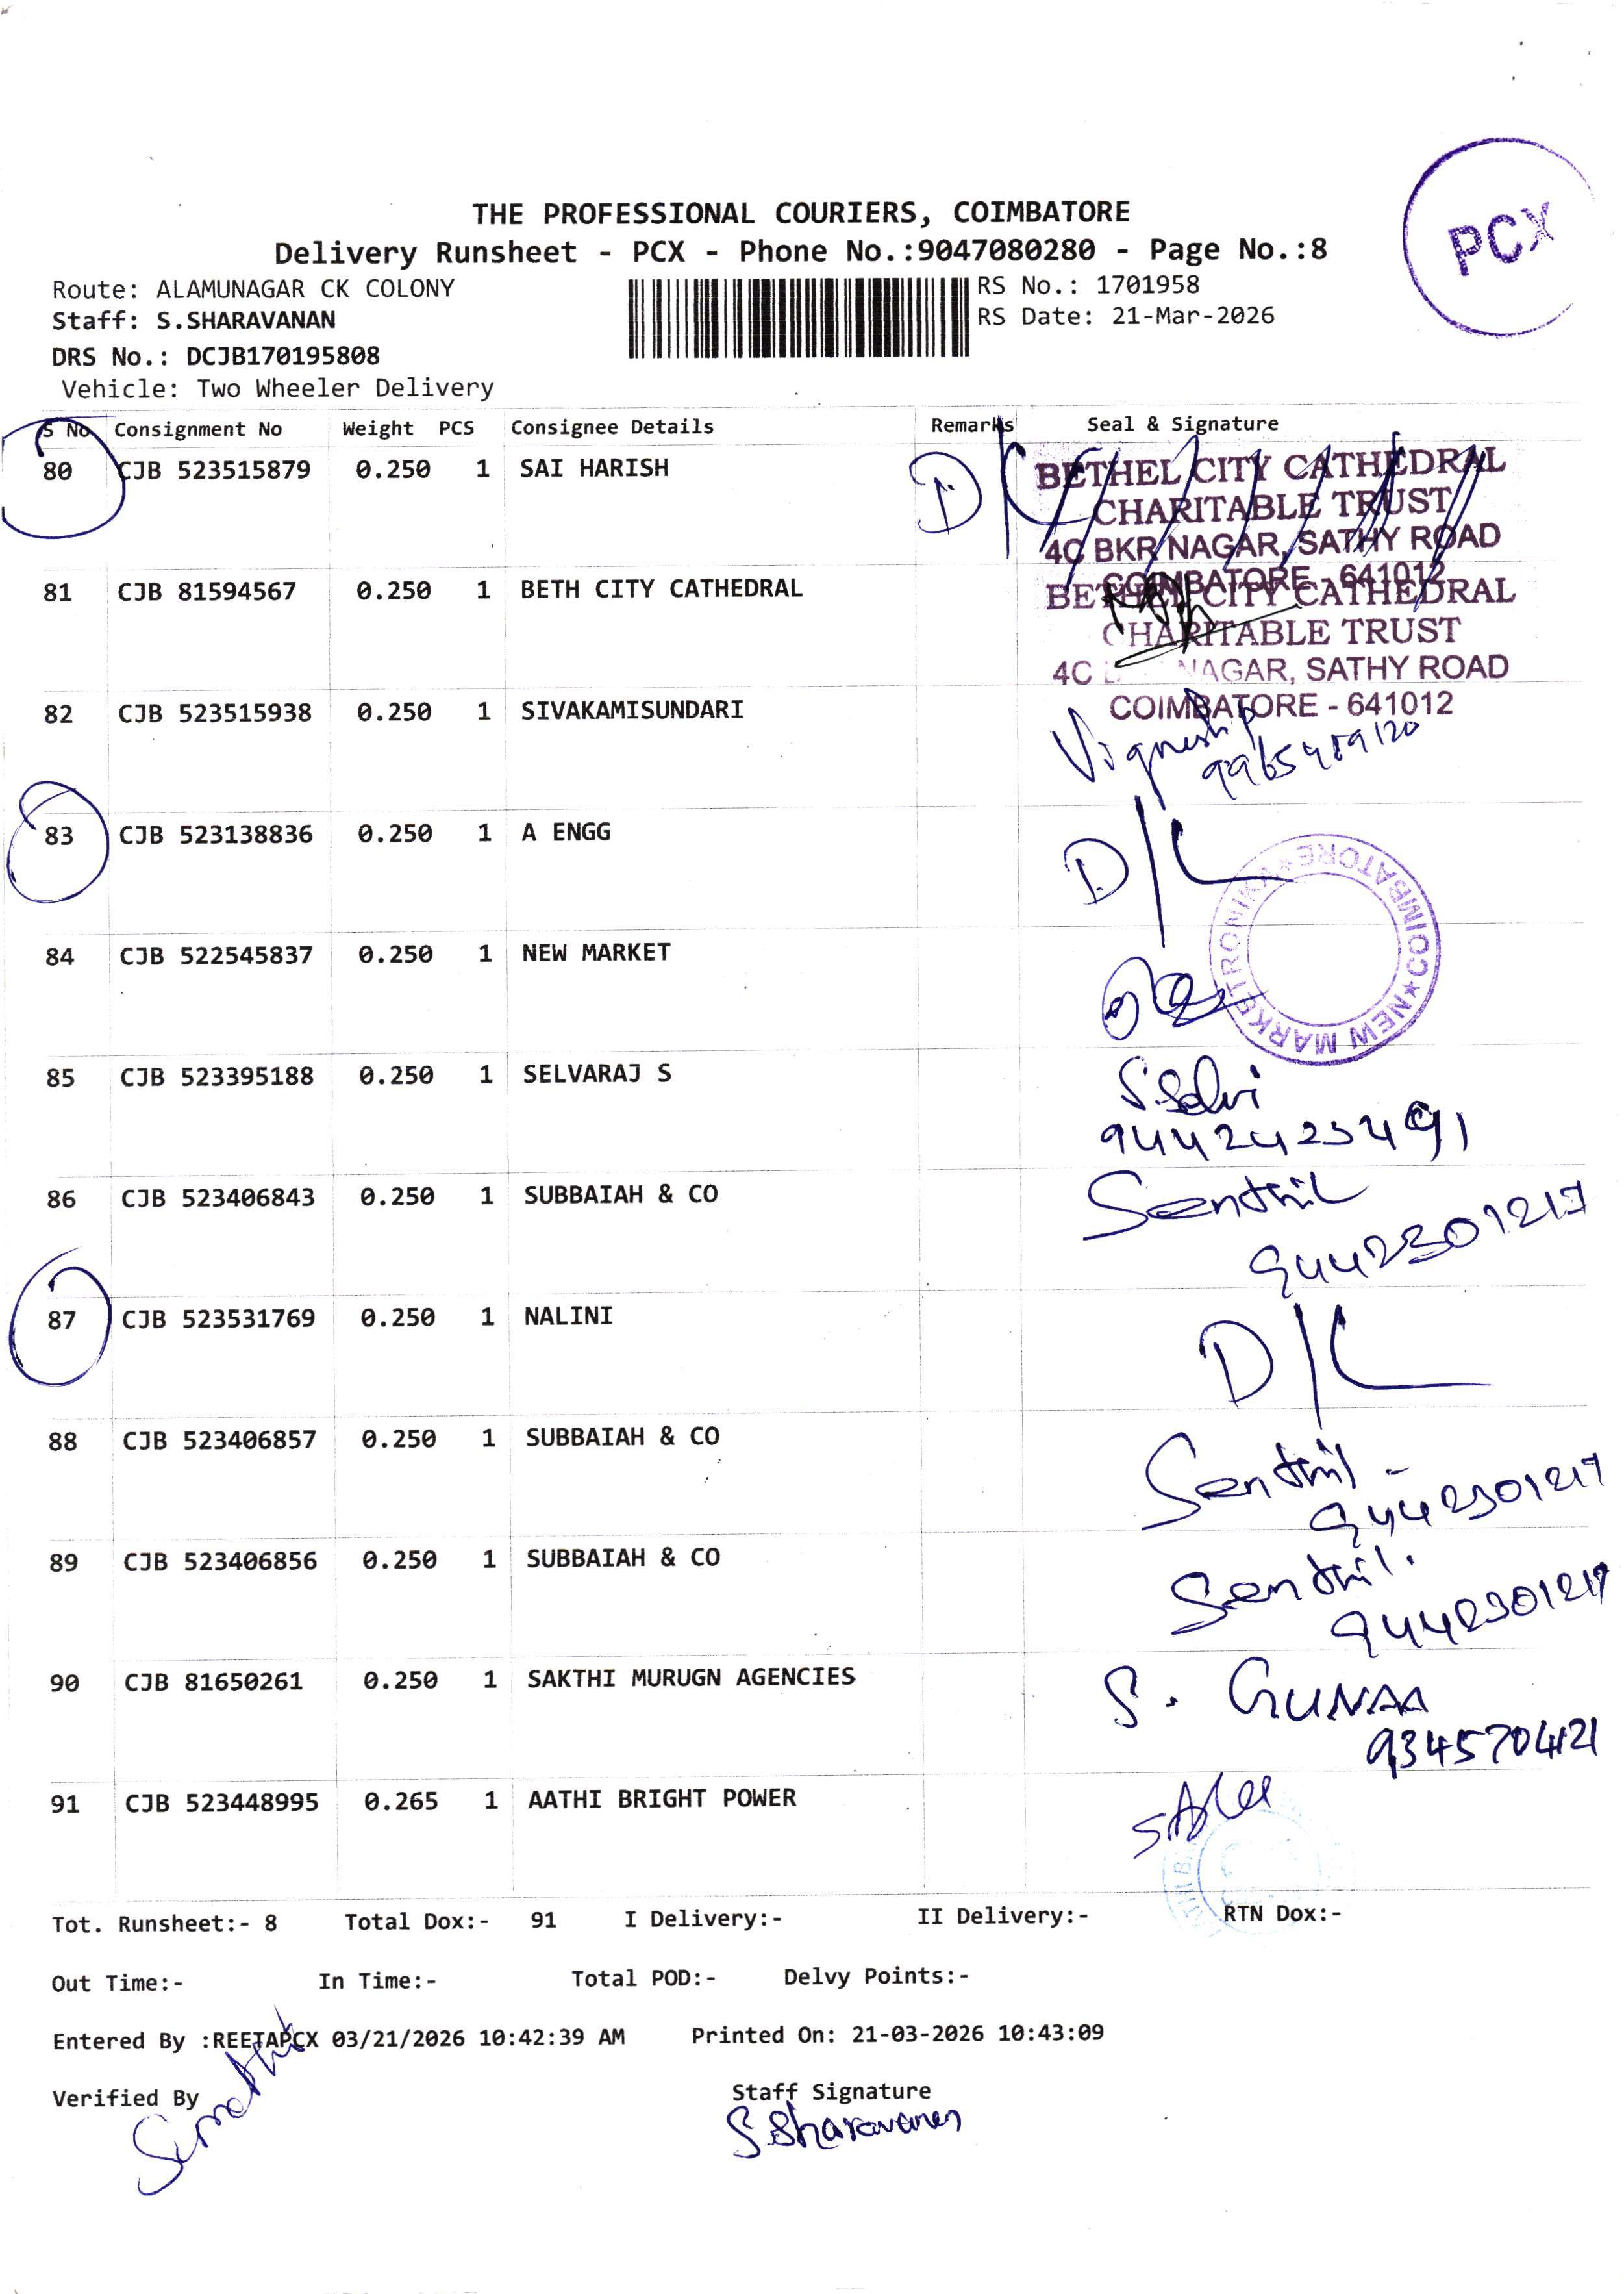 PCX
THE PROFESSIONAL COURIERS, COIMBATORE
Delivery Runsheet - PCX - Phone No.:9047080280 - Page No.:8
Route: ALAMUNAGAR CK COLONY
RS No.: 1701958
Staff: S.SHARAVANAN
RS Date: 21-Mar-2026
DRS No.: DCJB170195808
Vehicle: Two Wheeler Delivery
S No Consignment No Weight PCS Consignee Details Remarks Seal & Signature
80 CJB 523515879 0.250 1 SAI HARISH D/L
BETHEL CITY CATHEDRAL
CHARITABLE TRUST
4C BKR NAGAR, SATHY ROAD
COIMBATORE - 641012
81 CJB 81594567 0.250 1 BETH CITY CATHEDRAL
BETHEL CITY CATHEDRAL
CHARITABLE TRUST
4C NAGAR, SATHY ROAD
COIMBATORE - 641012
82 CJB 523515938 0.250 1 SIVAKAMISUNDARI
Vignesh P
9965489120
83 CJB 523138836 0.250 1 A ENGG D/L
84 CJB 522545837 0.250 1 NEW MARKET
NEW MARKETRONIKX COIMBATORE
85 CJB 523395188 0.250 1 SELVARAJ S
S.Selvi
86 CJB 523406843 0.250 1 SUBBAIAH & CO Senthil
9442301217
87 CJB 523531769 0.250 1 NALINI D/L
88 CJB 523406857 0.250 1 SUBBAIAH & CO Senthil -
9442301217
89 CJB 523406856 0.250 1 SUBBAIAH & CO Senthil.
9442301217
90 CJB 81650261 0.250 1 SAKTHI MURUGN AGENCIES S. GUNAA
9345704121
91 CJB 523448995 0.265 1 AATHI BRIGHT POWER
Tot. Runsheet:- 8 Total Dox:- 91 I Delivery:- II Delivery:- RTN Dox:-
Out Time:- In Time:- Total POD:- Delvy Points:-
Entered By :REETAPCX 03/21/2026 10:42:39 AM Printed On: 21-03-2026 10:43:09
Verified By Staff Signature
S.Sharavanan